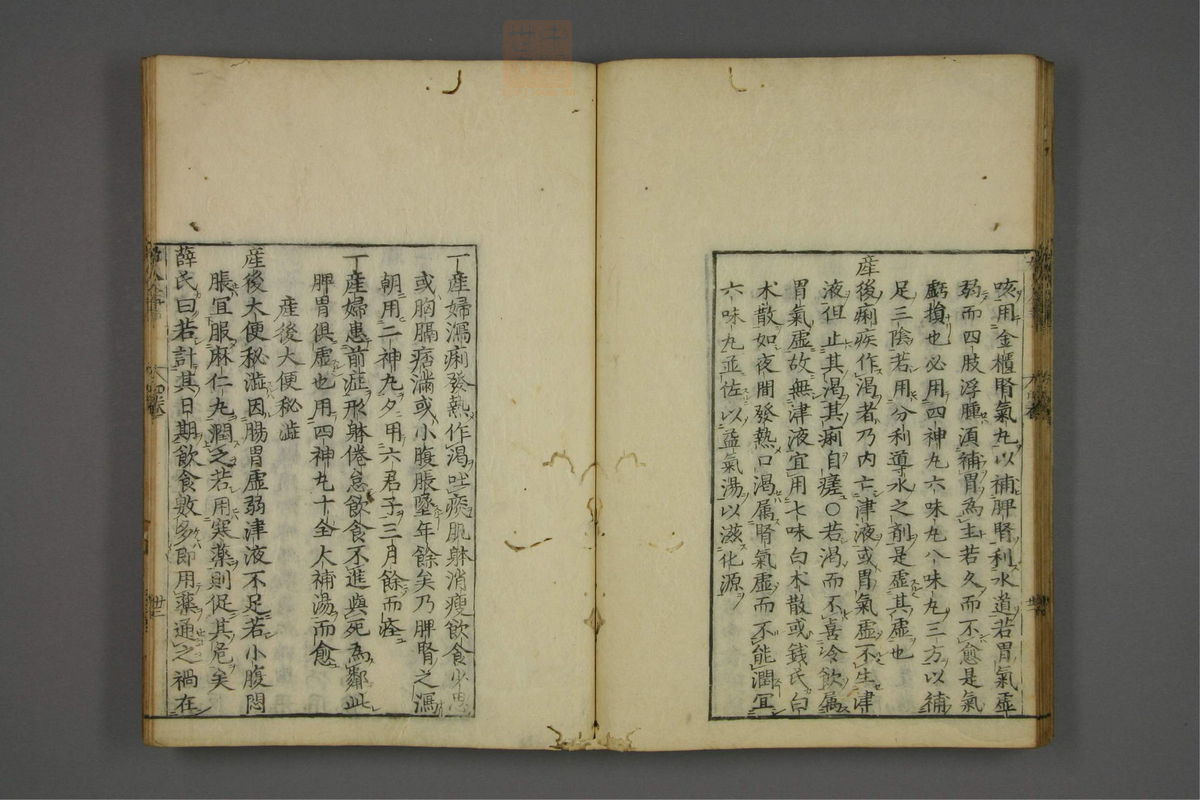 咳用金櫃腎氣丸以補脾腎利水道若胃氣虛
弱而四肢浮腫湏補胃為主若久而不愈是氣
虧損也必用四神丸六味丸八味丸三方以補
足三陰若用分利道水之剤是虛其虛也
產後痢疾作渴者乃内亡津液或胃氣虛不生津
液但止其渴其痢自瘥〇若渴而不喜冷飲属
胃氣虛故無津液宜用七味白朮散或錢氏白
朮散如夜間發熱口渴属腎氣虛而不能潤宜
六味丸並佐以益氣湯以滋化源
一產婦瀉痢發熱作渴吐痰肌躰消瘦飲食少思
或胸膈痞滿或小腹脹墜年餘矣乃脾腎之瀉
朝用二神丸夕用六君子三月餘而痊
一產婦患前症形躰倦怠飲食不進與死為鄰此
脾胃俱虛也用四神丸十全大補湯而愈
產後大便秘澁
產後大便秘澁因腸胃虛弱津液不足若小腹悶
脹宜服麻仁丸潤之若用寒薬則促其危矣
薛氏曰若計其日期飲食數多即用薬通之禍在